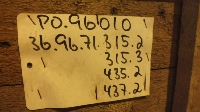 PO.96010
36.96.71.315.2
315.3
435.2
437.2